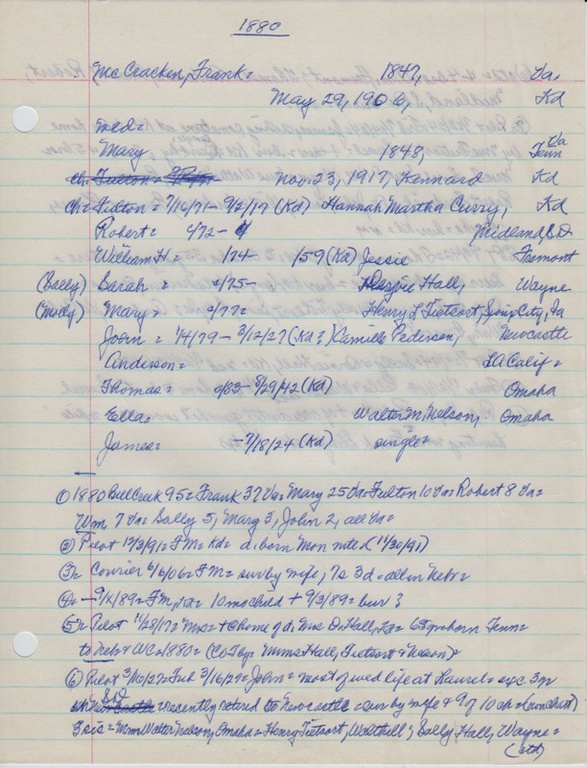 1880
McCracken, Frank = 1847, Va.
May 29, 1906, Kd
md =
Mary 1848, Va Tenn
Nov. 23, 1917, Kennard Kd
ch = Fulton = 7/16/71 - 9/2/19 (Kd) Hannah Martha Curry, Kd
Robert = 4/72 - Midland, SD
William H = 1/74 - 1/59 (Kd) Jessie Fremont
(Sally) Sarah = 2/75 - Hall, Wayne
(Molly) Mary = 2/77 = Henry L Tietsort, Sioux City, Ia
John = 1/4/79 - 3/12/27 (Kd?) Camille Pedersen, Newcastle
Anderson = LA Calif =
Thomas = 9/83 - 8/29/42 (Kd) Omaha
Ella = Walter M. Nelson, Omaha
James = - 7/18/24 (Kd) single =
① 1880 Bell Creek 95 = Frank 37 Va = Mary 25 Va = Fulton 10 Va = Robert 8 Va =
Wm 7 Va = Sally 5, Mary 3, John 2, all Va =
② Pilot 12/3/91 = FM = Kd = d. born Mon nite L (11/30/91)
③ Courier 6/6/06 = FM = surv by wife, 7s 3d = all in Nebr =
④ = 9/2/89 = FM, = 10 mo child + 9/3/89 = bur ?
⑤ Pilot 11/28/17 = Mrs = + @ home of d. Mrs D. Hall, = 69 yrs born Tenn =
to Nebr & WC = 1880 = (Co Top = Mmes Hall, Tietsort & Nelson) =
⑥ Pilot 3/10/27 = Trib 3/16/27 = John = most of wed life at Laurel = exc 3 yr
SD = recently retired to Newcastle = surv by wife & 9 of 10 ch = (non chist)
3 sis = Mmes Walter Nelson, Omaha = Henry Tietsort, Walthill; Sally Hall, Wayne =